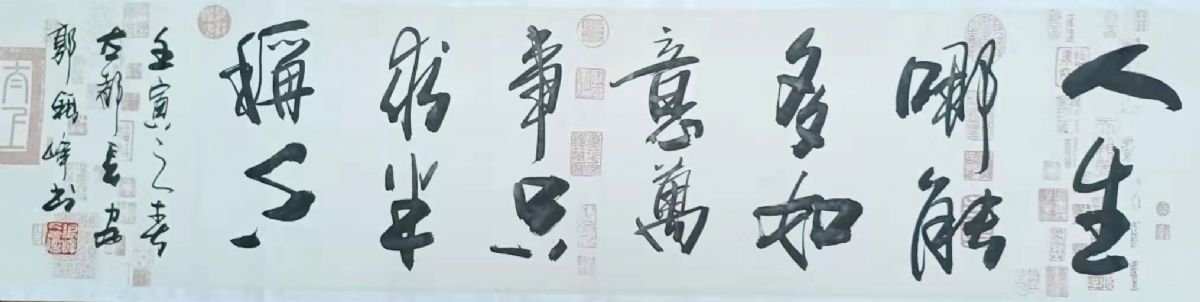 人生
哪能
多如
意萬
事只
求半
稱心
壬寅之春
古都長安
郭
峰书